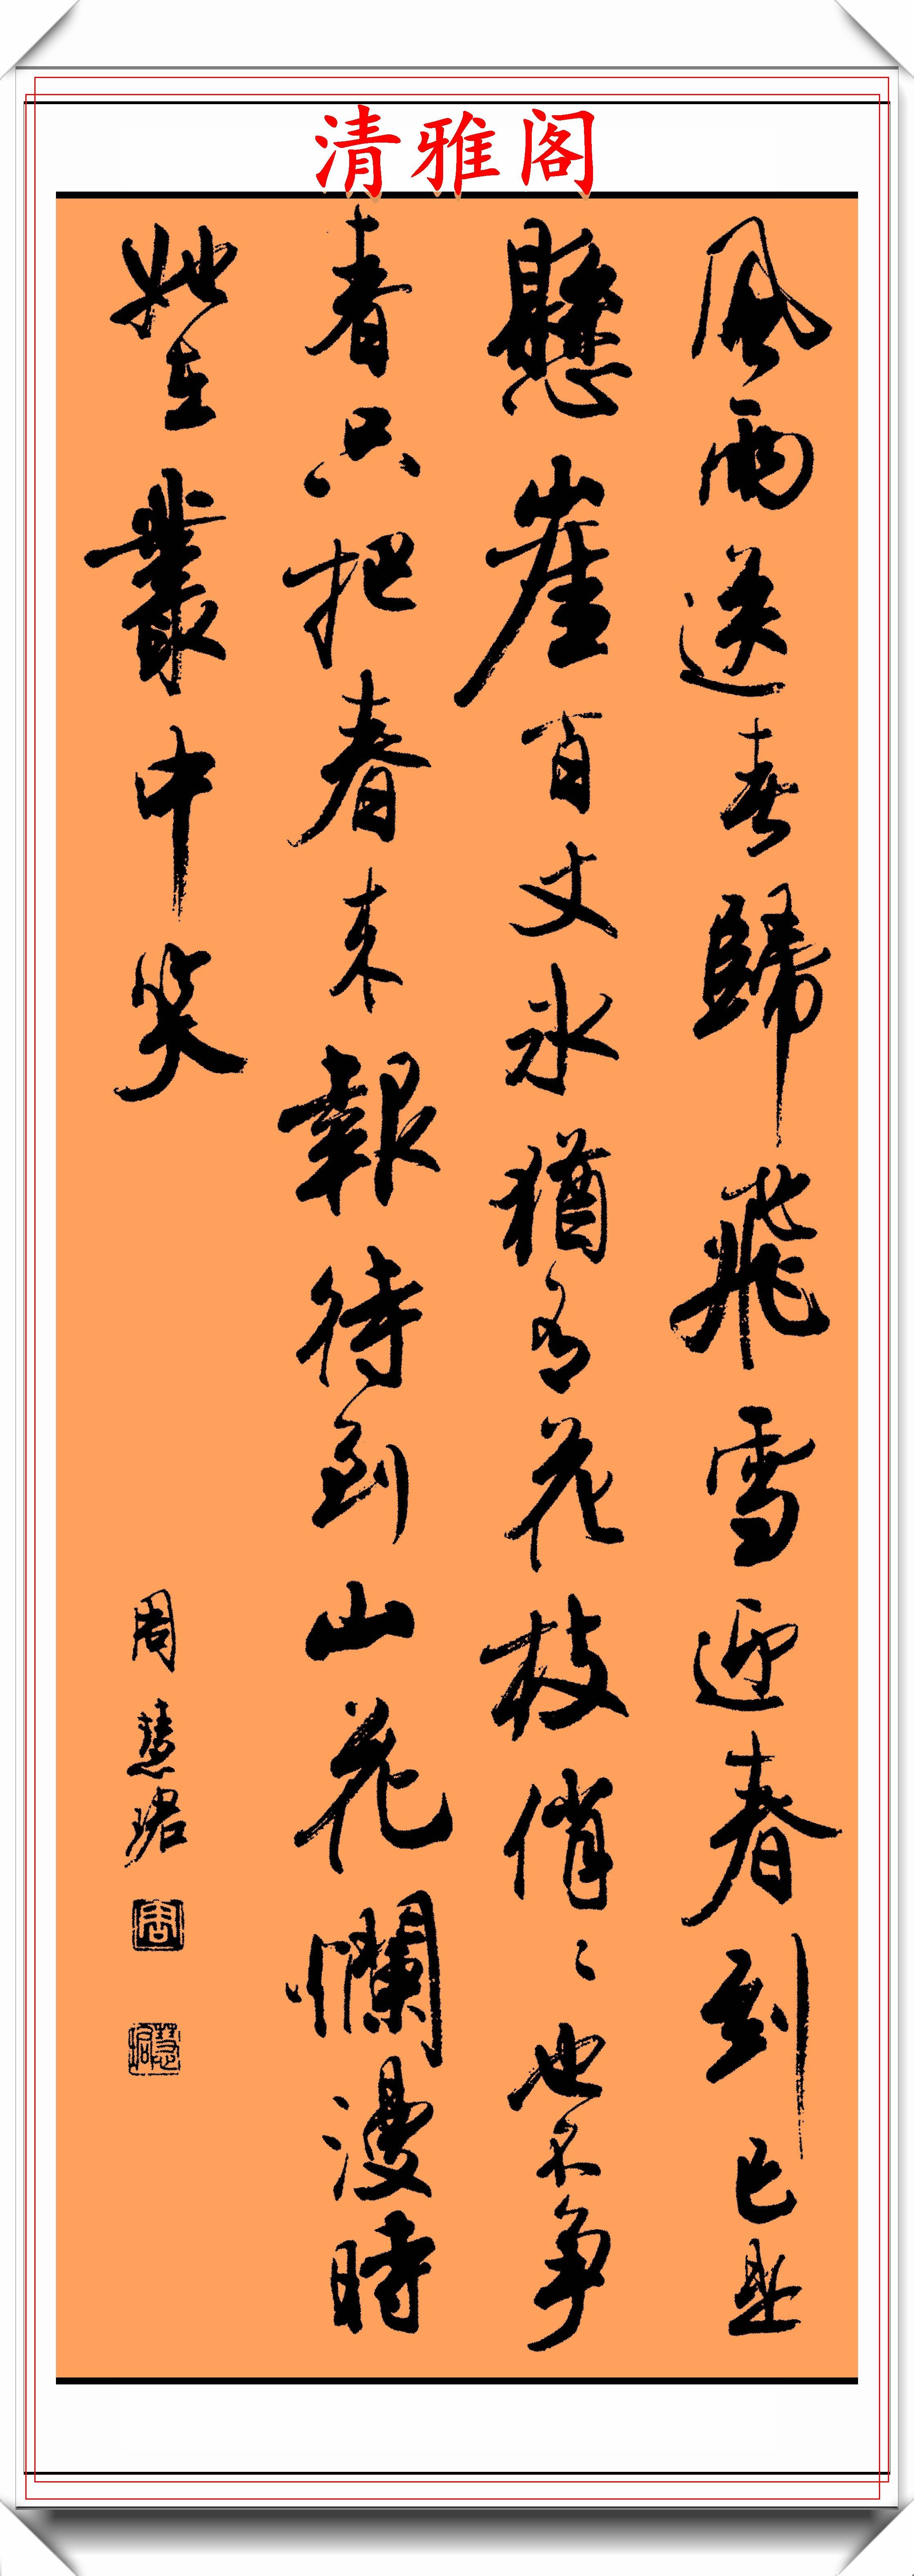 清雅阁
風雨送春歸飛雪迎春到已是
懸崖百丈冰猶有花枝俏〻也不争
春只把春来報待到山花爛漫時
她在叢中笑
周慧珺
周
慧珺